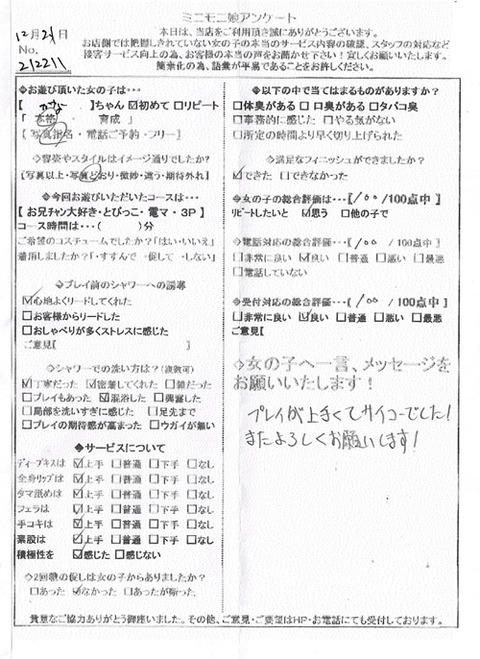 ミニモニ娘アンケート
12月21日
No.
212211
本日は、当店をご利用頂き誠にありがとうございます。
お店側では把握しきれていない女の子の本当のサービス内容の確認、スタッフの対応など
接客サービス向上の為、お客様の声をお聞かせ下さい！宜しくお願いいたします。
簡素化の為、語彙が平易であることをお許しください。
◆お遊び頂いた女の子は…
【 】ちゃん ☑初めて □リピート
「 本格 育成 」
【写真指名・電話ご予約・フリー】
◇容姿やスタイルはイメージ通りでしたか？
【写真以上・写真どおり・微妙・違う・期待外れ】
◆今回お遊びいただいたコースは…
【お兄チャン大好き・とびっこ・電マ・3P】
コース時間は…( )分
ご希望のコスチュームでしたか？「はい・いいえ」
着用しましたか？「・すすんで ・促して ・しない」
◇プレイ前のシャワーへの誘導
☑心地よくリードしてくれた
□お客様からリードした
□おしゃべりが多くストレスに感じた
ご意見【 】
◇シャワーでの洗い方は？(複数可)
☑丁寧だった ☑密着してくれた □雑だった
□プレイもあった ☑混浴した □興奮した
□局部を洗いすぎに感じた □足先まで
□プレイの期待感が高まった □ウガイが無い
◆サービスについて
ディープキスは ☑上手 □普通 □下手 □なし
全身リップは ☑上手 □普通 □下手 □なし
タマ舐めは ☑上手 □普通 □下手 □なし
フェラは ☑上手 □普通 □下手 □なし
手コキは ☑上手 □普通 □下手 □なし
素股は ☑上手 □普通 □下手 □なし
積極性を ☑感じた □感じない
◇2回戦の促しは女の子からありましたか？
□あった ☑なかった □あったが断った
◆以下の中で当てはまるものがありますか？
□体臭がある □口臭がある □タバコ臭
□事務的に感じた □やる気がない
□所定の時間より早く切り上げられた
◇満足なフィニッシュができましたか？
☑できた □できなかった
◆女の子の総合評価は…【100/100点中】
リピートしたいと ☑思う □他の子で
◇電話対応の総合評価…【100/100点中】
□非常に良い ☑良い □普通 □悪い □最悪
□電話していない
◆受付対応の総合評価…【100/100点中】
□非常に良い ☑良い □普通 □悪い □最悪
ご意見【
◇女の子へ一言、メッセージを
お願いいたします！
プレイが上手くてサイコーでした！
またよろしくお願いします！
貴重なご協力ありがとう御座いました。その他、ご意見・ご要望はHP・お電話にても受付しております。